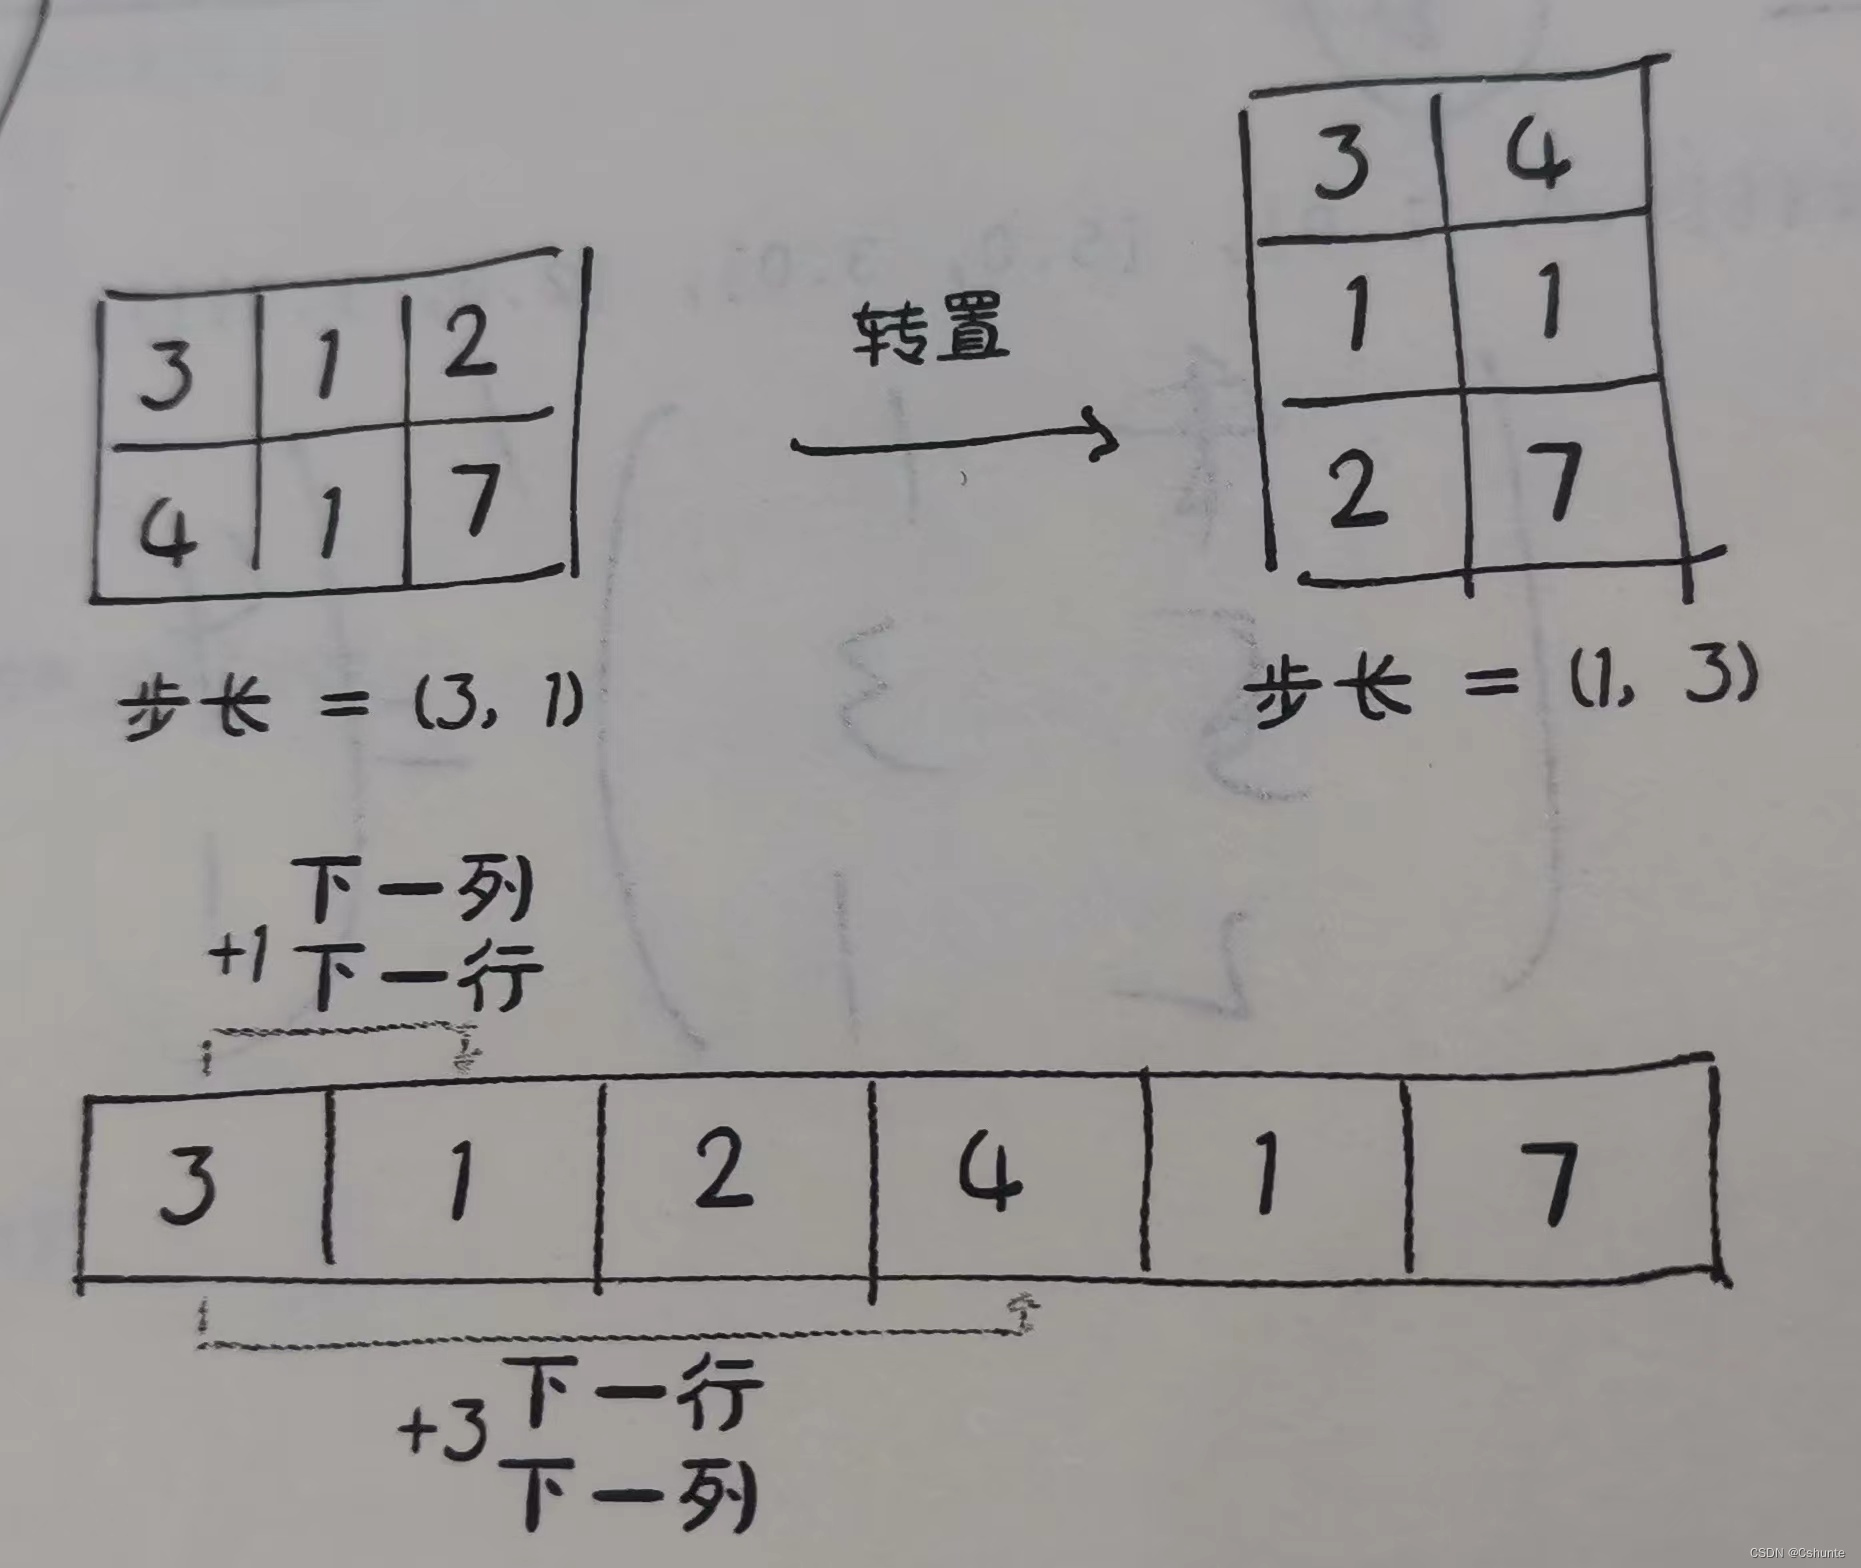 3 1 2
4 1 7
步长 = (3, 1)
转置
3 4
1 1
2 7
步长 = (1, 3)
下一列
+1 下一行
3 1 2 4 1 7
+3 下一行
下一列
CSDN @Cshunte